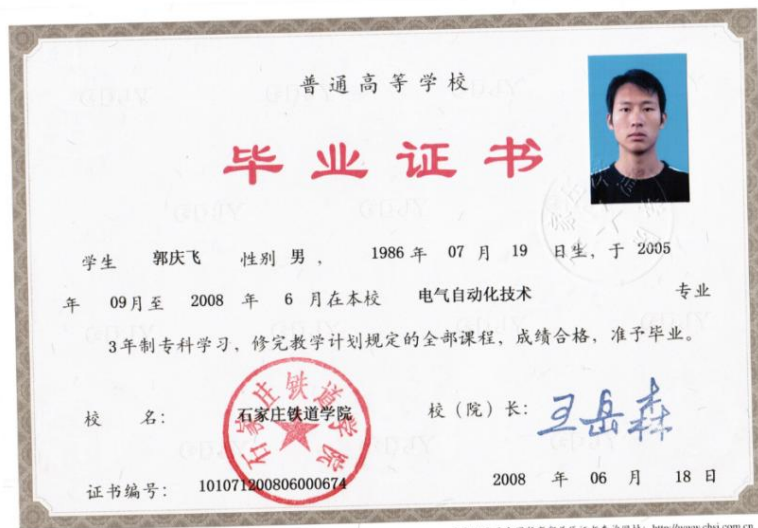 普通高等学校
毕业证书
学生 郭庆飞 性别 男 ， 1986 年 07 月 19 日生，于 2005
年 09月至 2008 年 6 月在本校 电气自动化技术 专业
3年制专科学习，修完教学计划规定的全部课程，成绩合格，准予毕业。
校 名： 石家庄铁道学院 校（院）长： 王岳森
石家庄铁道学院
证书编号： 101071200806000674 2008 年 06 月 18 日
http://www.chsi.com.cn